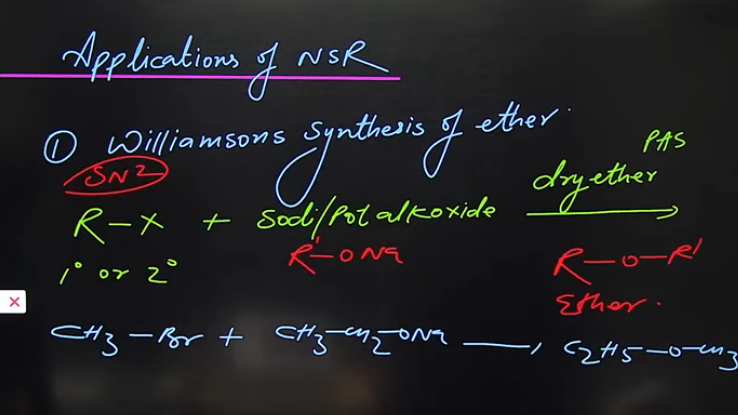 Applications of NSR
① Williamsons Synthesis of ether.
SN2
PAS
R-X + Sodi/Potalkoxide dryether
R'-ONa
R-O-R'
1° or 2°
Ether.
CH3-Br + CH3-CH2-ONa → C2H5-O-CH3